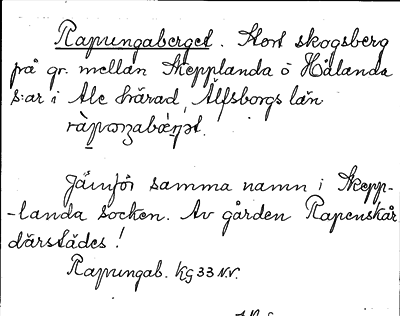 Rapungaberget. Stort skogsberg
på gr. mellan Skepplanda o Hålanda
s:ar i Ale härad, Älfsborgs län
Jämför samma namn i Skepp-
-landa socken. Av gården Rapenskår
därstädes!
Rapungab. KG 33 NV.